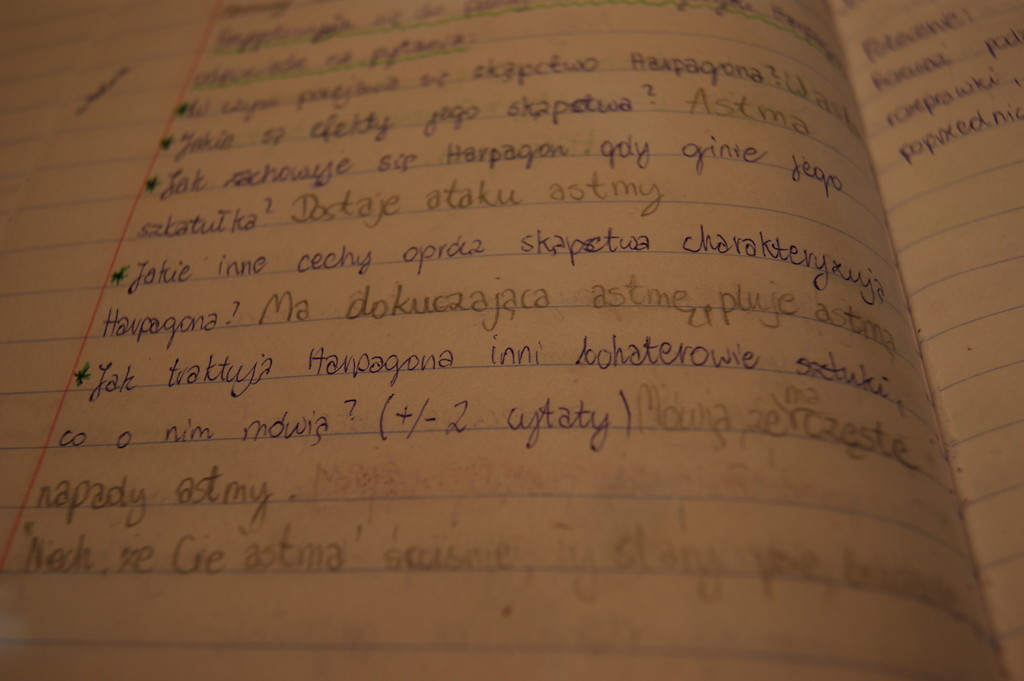 odpowiedz na pytania.
*W czym przejawia się skąpstwo Harpagona?
*Jakie są efekty jego skąpstwa? Astma
*Jak zachowuje się Harpagon gdy ginie jego
szkatułka? Dostaje ataku astmy
*Jakie inne cechy oprócz skąpstwa charakteryzują
Harpagona? Ma dokuczająca astmę, pluje astmą
*Jak traktują Harpagona inni bohaterowie sztuki,
co o nim mówią? (+/- 2 cytaty) Mówią, że ma częste
napady astmy.
Niech, że Cie "astma" ściśnie, Ty stary
Polecenie:
rozprawki,